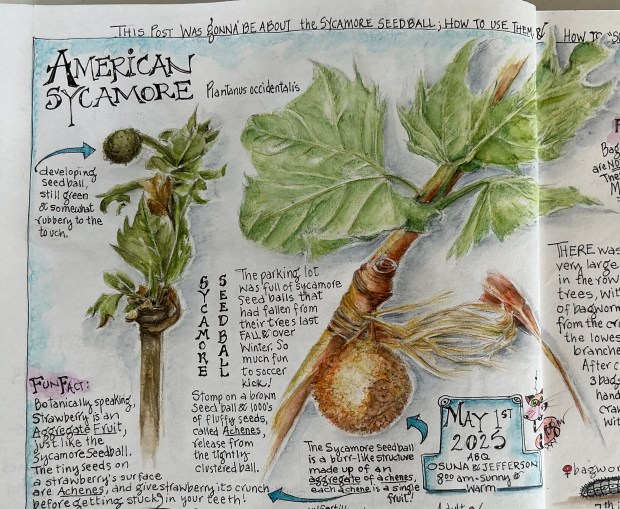 THIS POST WAS GONNA BE ABOUT the SYCAMORE SEEDBALL; HOW TO USE THEM, & HOW TO
AMERICAN
SYCAMORE
Plantanus occidentalis
developing
Seedball,
still green
& somewhat
rubbery to the
touch.
SYCAMORE
SEEDBALL
The parking lot
was full of sycamore
Seed balls that
had fallen from
their trees last
FALL & over
Winter. So
much fun
to soccer
kick!
Stomp on a brown
Seed ball & 1000's
of fluffy seeds,
called Achenes,
release from
the tightly
clustered ball.
FUN FACT:
Botanically speaking,
Strawberry is an
Aggregate Fruit,
just like the
Sycamore Seedball.
The tiny seeds on
a strawberry's surface
are Achenes, and give strawberry its crunch
before getting stuck in your teeth!
The Sycamore Seedball
is a burr-like structure
made up of an
aggregate of achenes,
each achene is a single
fruit!
MAY 1st
2025
ABQ
OSUNA & JEFFERSON
8:00 am - Sunny &
Warm
Bag
are NO
The
M
THERE was
very large
in the row
trees, wit
of bagworm
from the cr
the lowes
branche
After c
3 bag
hand
craw
wit
bagwor
7th i